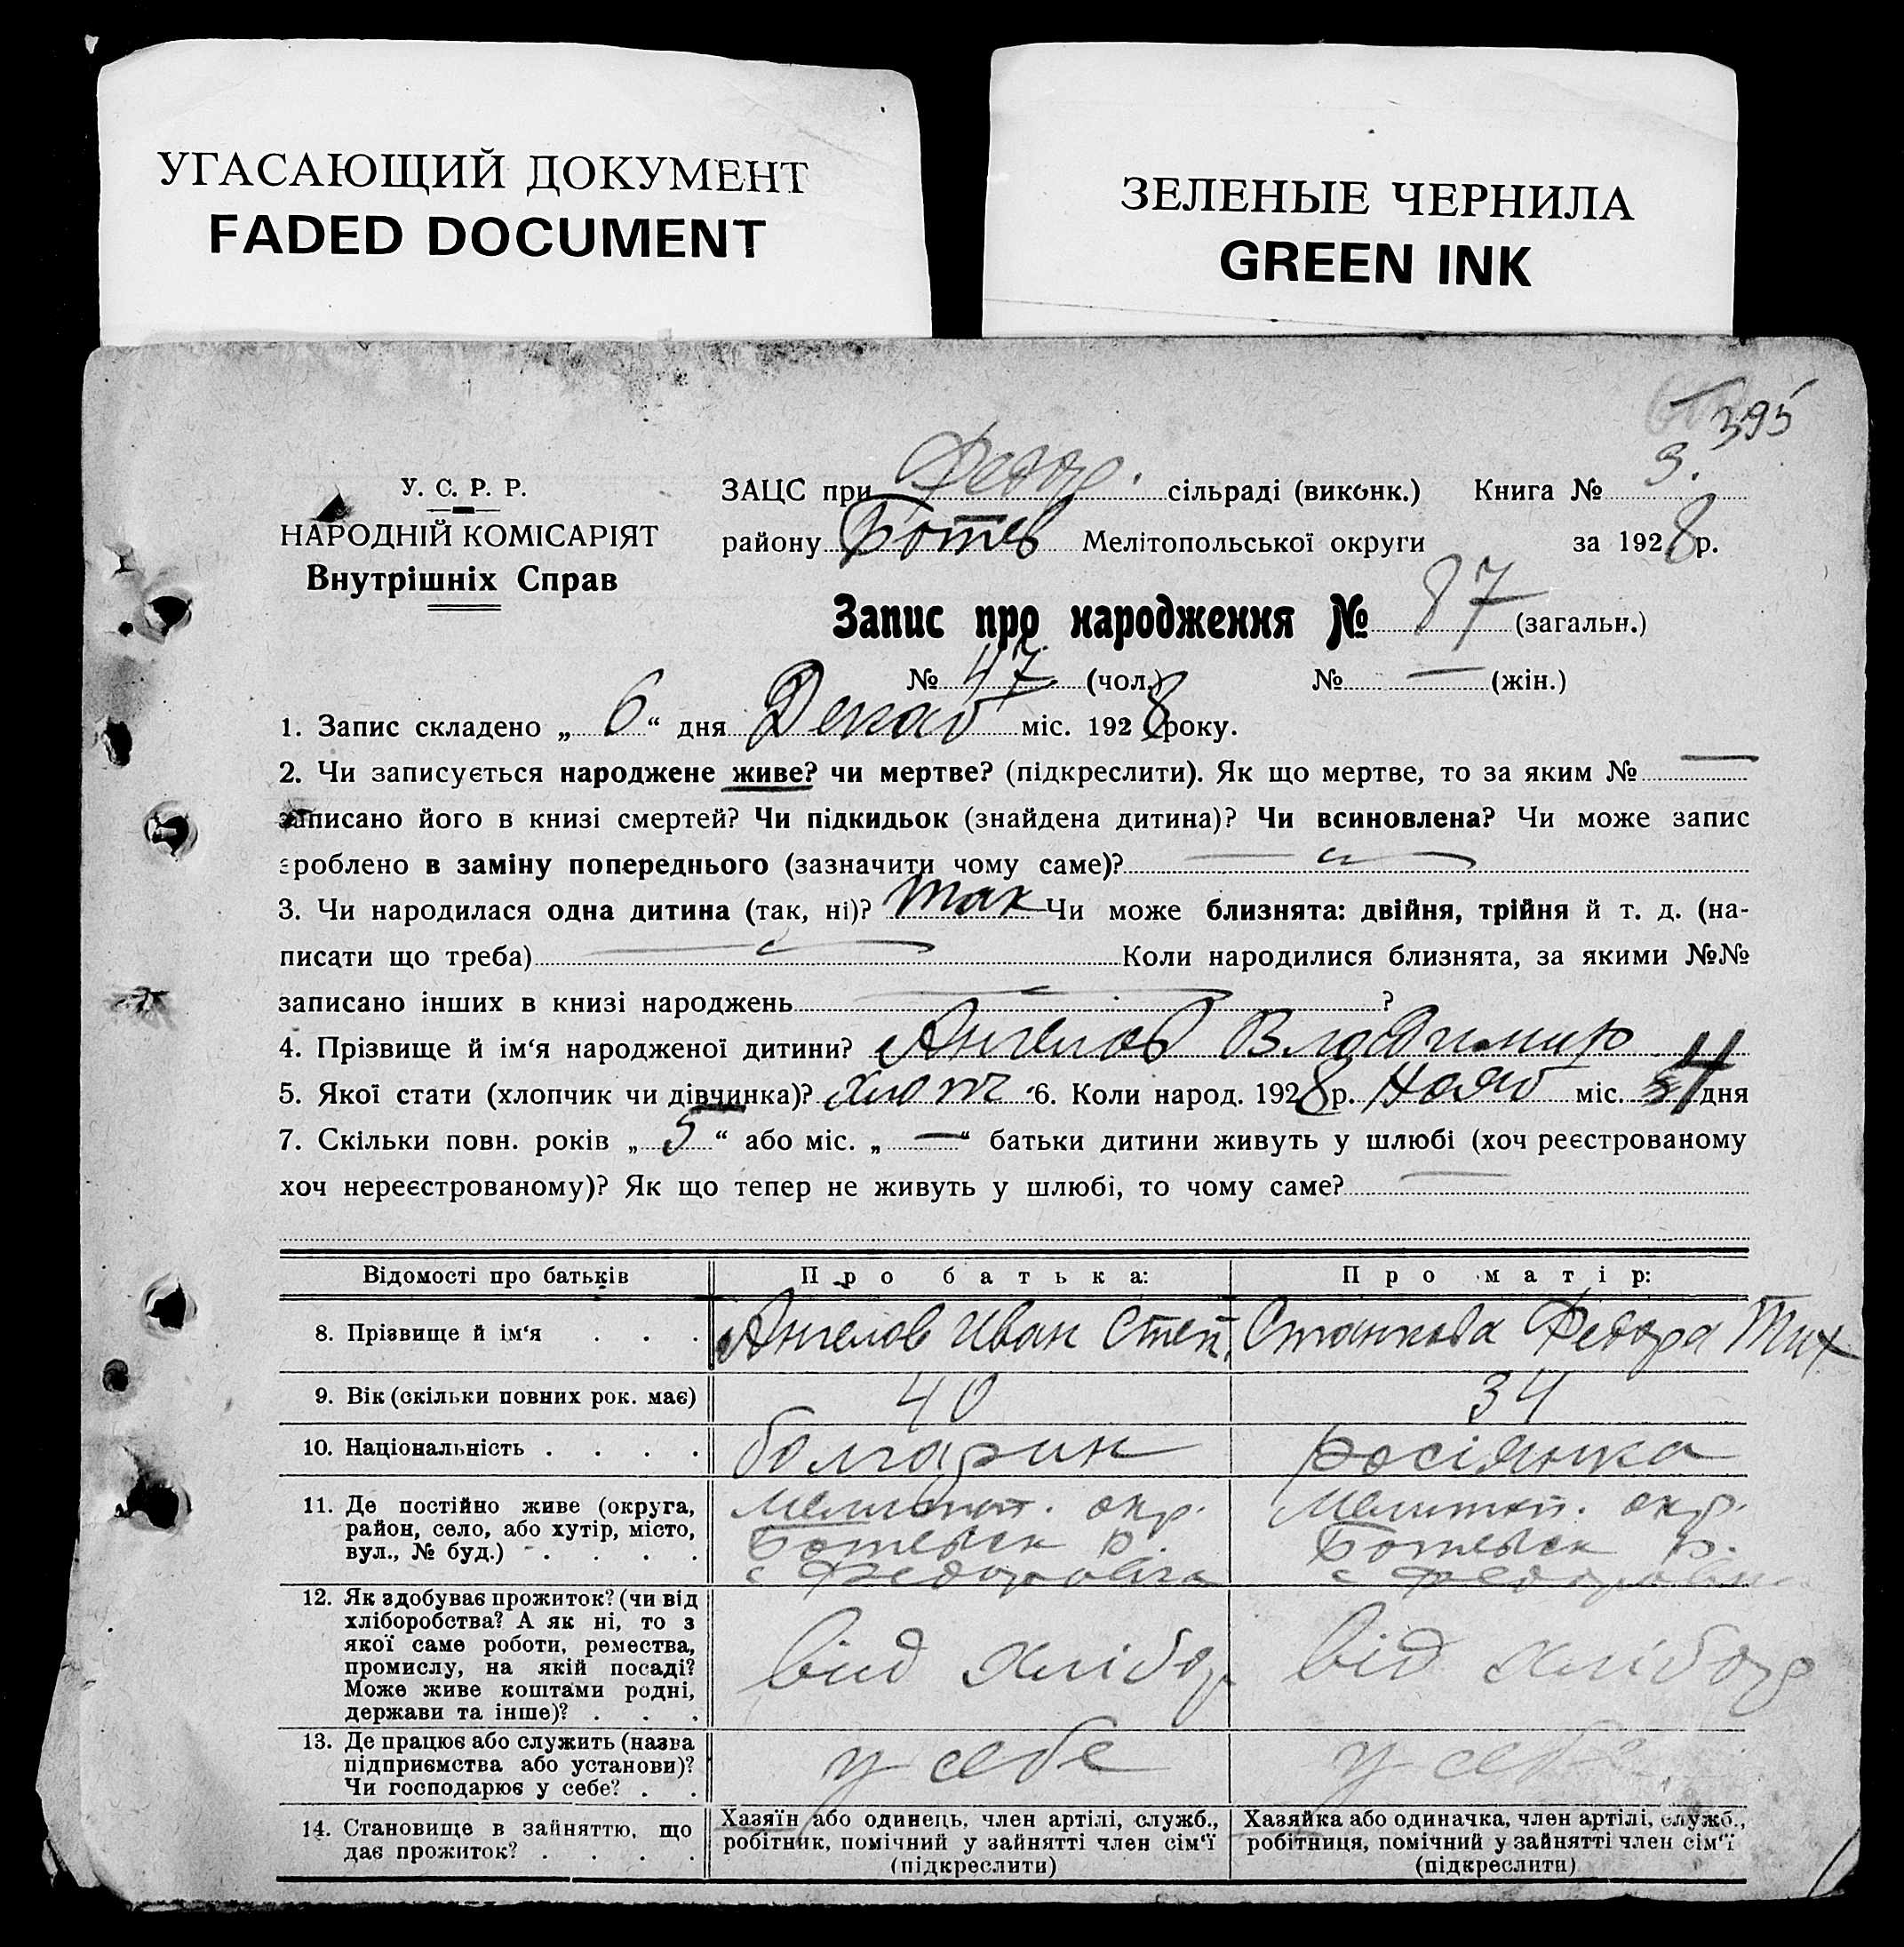 УГАСАЮЩИЙ ДОКУМЕНТ
FADED DOCUMENT
ЗЕЛЕНЫЕ ЧЕРНИЛА
GREEN INK
395
У. С. Р. Р.
НАРОДНІЙ КОМІСАРІЯТ
Внутрішніх Справ
ЗАЦС при Федор. сільраді (виконк.) Книга № 3.
району Ботев Мелітопольської округи за 1928 р.
Запис про народження № 87 (загальн.)
№ 47 (чол.) № — (жін.)
1. Запис складено „ 6 “ дня Декаб міс. 1928 року.
2. Чи записується народжене живе? чи мертве? (підкреслити). Як що мертве, то за яким № —
записано його в книзі смертей? Чи підкидьок (знайдена дитина)? Чи всиновлена? Чи може запис
зроблено в заміну попереднього (зазначити чому саме)?
3. Чи народилася одна дитина (так, ні)? так Чи може близнята: двійня, трійня й т. д. (на-
писати що треба) Коли народилися близнята, за якими №№
записано інших в книзі народжень ?
4. Прізвище й ім‘я народженої дитини? Ангелов Владимир
5. Якої стати (хлопчик чи дівчинка)? хлопч 6. Коли народ. 1928 р. Нояб міс. дня
7. Скільки повн. років „ 5 “ або міс. „ — “ батьки дитини живуть у шлюбі (хоч реєстрованому
хоч нереєстрованому)? Як що тепер не живуть у шлюбі, то чому саме? —
Відомості про батьків Про батька: Про матір:
8. Прізвище й ім‘я . . . Ангелов Иван Степ. Станкова Федора Тих
9. Вік (скільки повних рок. має) 40 34
10. Національність . . . . болгарин росіянка
11. Де постійно живе (округа,
район, село, або хутір, місто,
вул., № буд.) . . . .
Мелитоп. окр.
Ботевск р.
с Федоровка
Мелитоп. окр.
Ботевск р.
с Федоровка
12. Як здобуває прожиток? (чи від
хліборобства? А як ні, то з
якої саме роботи, ремества,
промислу, на якій посаді?
Може живе коштами родні,
держави та інше)? . . .
від хлібор від хлібор
13. Де працює або служить (назва
підприємства або установи)?
Чи господарює у себе? . .
у себе у себе
14. Становище в зайняттю, що
дає прожиток? . . . .
Хазяїн або одинець, член артілі, служб.,
робітник, помічний у зайнятті член сім‘ї
(підкреслити)
Хазяйка або одиначка, член артілі, служб.,
робітниця, помічний у зайнятті член сім‘ї
(підкреслити)